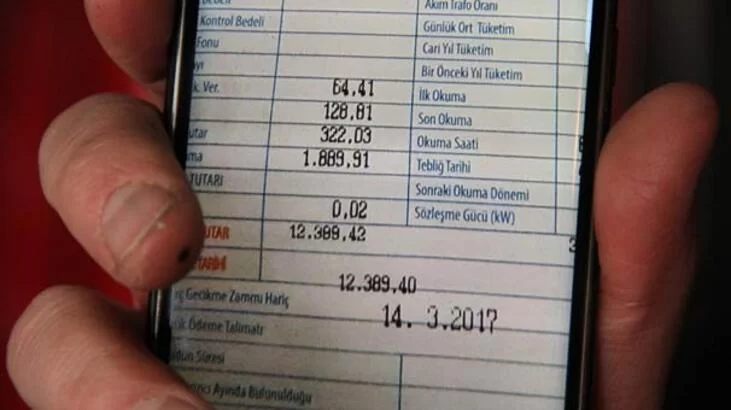 Akım Trafo Oranı
Kontrol Bedeli
Günlük Ort Tüketim
Fonu
Cari Yıl Tüketim
Bir Önceki Yıl Tüketim
Ver. 64,41
İlk Okuma
128,81
Son Okuma
322,03
Okuma Saati
1.889,91
Tebliğ Tarihi
TUTARI
Sonraki Okuma Dönemi
0,02
Sözleşme Gücü (kW)
UTAR 12.389,42
12.389,40
Gecikme Zammı Hariç
14. 3.2017
Ödeme Talimatı
Süresi
Ayında Bulunulduğu